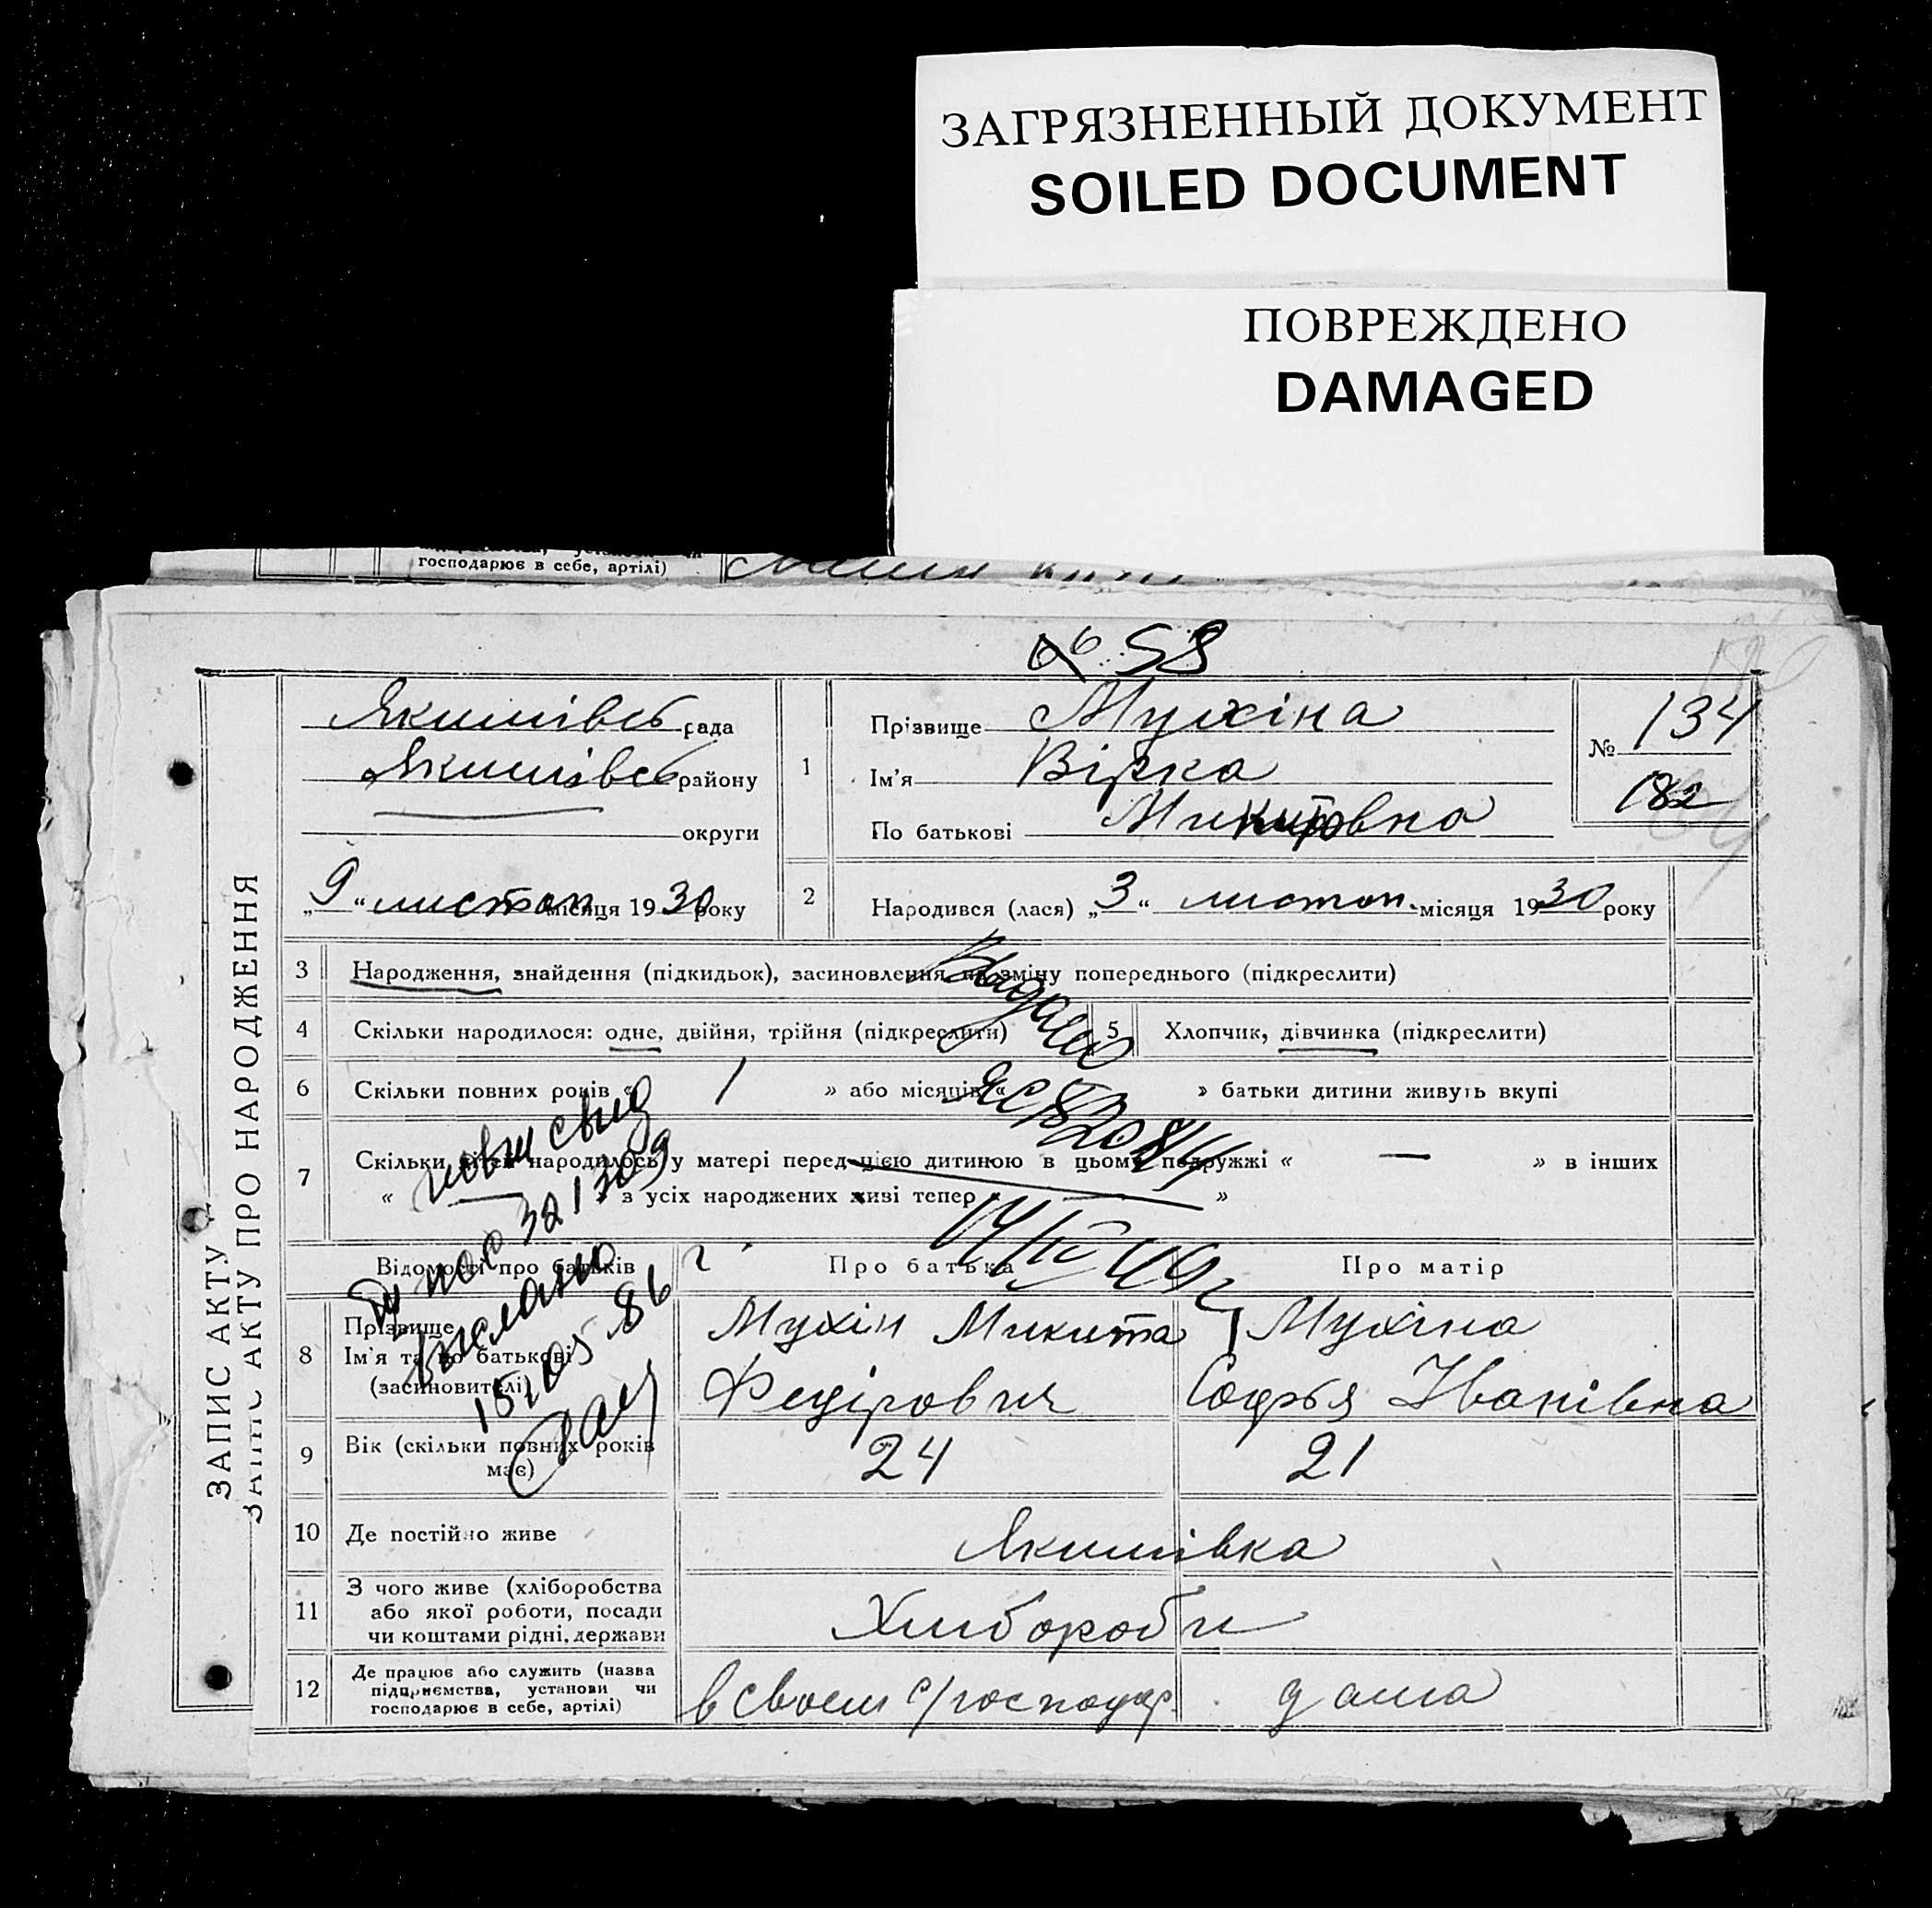 ЗАГРЯЗНЕННЫЙ ДОКУМЕНТ
SOILED DOCUMENT
ПОВРЕЖДЕНО
DAMAGED
господарює в себе, артілі)
58
ЗАПИС АКТУ
ЗАПИС АКТУ ПРО НАРОДЖЕННЯ
Якимівсь рада
Якимівсь району
округи
1
Прізвище Мухіна
Ім'я Вірка
По батькові Микитовна
№ 134
182
„9“ листоп місяця 1930 року
2
Народився (лася) „3“ листоп. місяця 1930 року
3 Народження, знайдення (підкидьок), засиновлення на зміну попереднього (підкреслити)
4 Скільки народилося: одне, двійня, трійня (підкреслити)
5 Хлопчик, дівчинка (підкреслити)
6 Скільки повних років « 1 » або місяців « » батьки дитини живуть вкупі
7 Скільки дітей народилось у матері перед цією дитиною в цьому подружжі « — » в інших
« — з усіх народжених живі тепер « »
Відомості про батьків
Про батька
Про матір
8 Прізвище
Ім'я та по батькові
(засиновителі)
Мухін Микита
Федірович
Мухіна
Софья Іванівна
9 Вік (скільки повних років має)
24
21
10 Де постійно живе
Якимівка
11 З чого живе (хліборобства
або якої роботи, посади
чи коштами рідні, держави
Хлібороби
12 Де працює або служить (назва
підприємства, установи чи
господарює в себе, артілі)
в своем с/господар.
дома
Видано
14/IV 49 г
321309
15 05 86